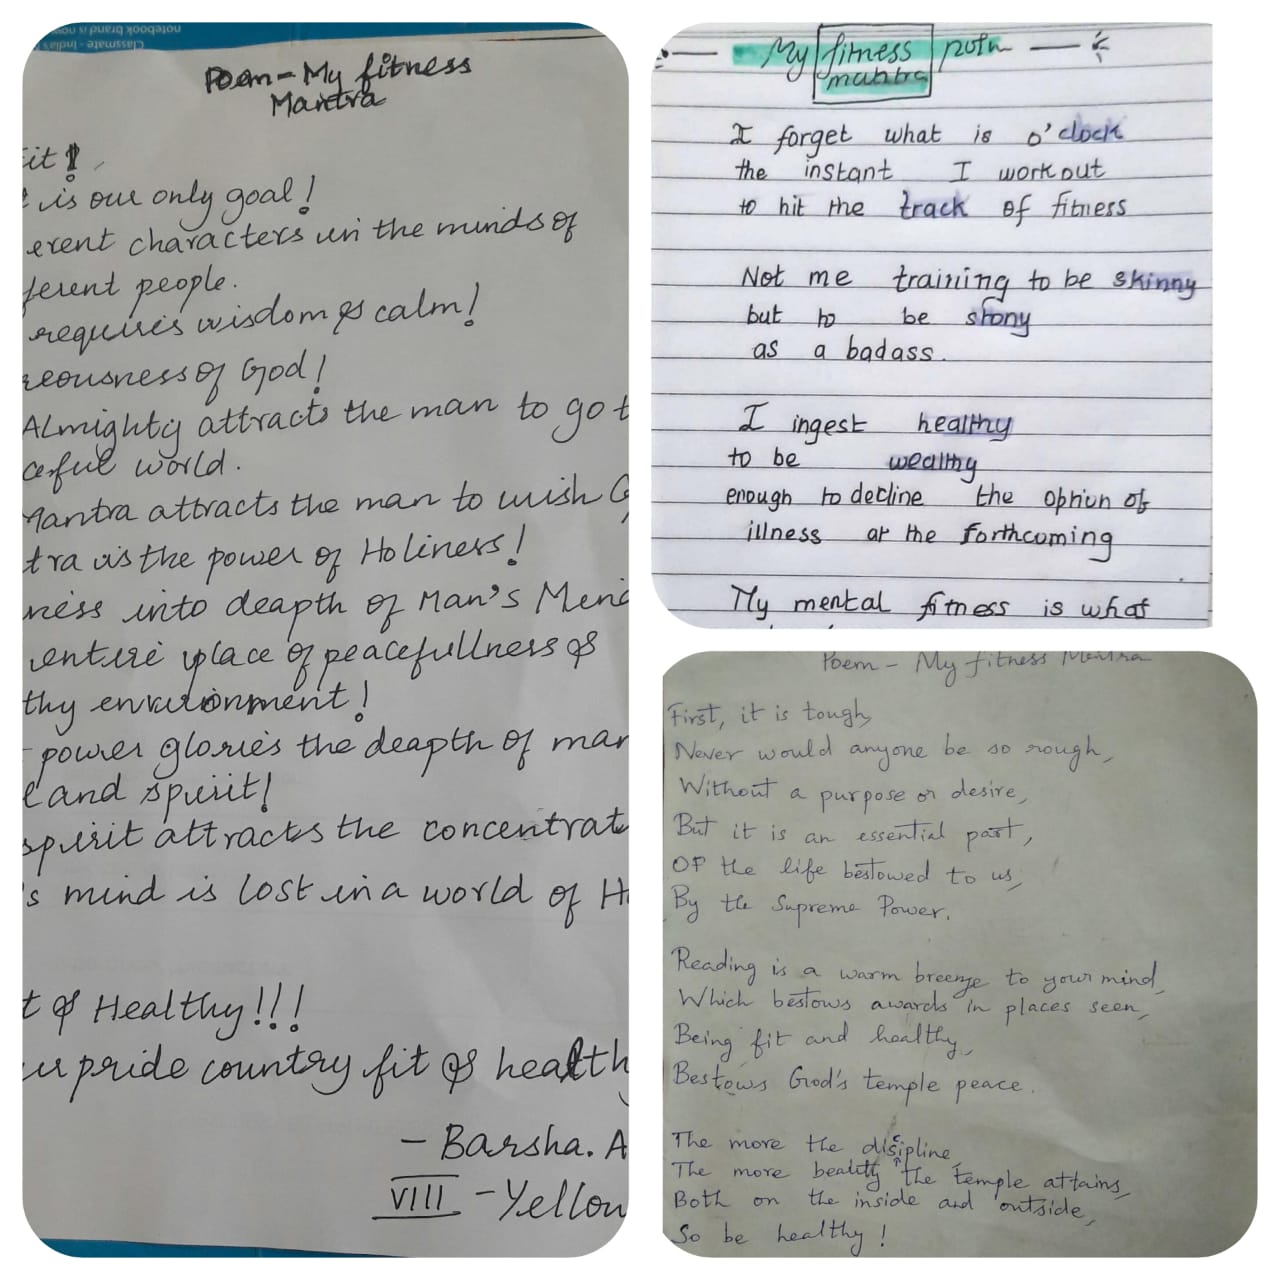 Poem - My fitness
Mantra
is our only goal!
characters in the minds of
people.
requires wisdom & calm!
of God!
Almighty attracts the man to go
world.
Mantra attracts the man to wish
is the power of Holiness!
into deapth of Man's
entire place of peacefullness &
environment!
power glories the deapth of
and spirit!
spirit attracts the
mind is lost in a world of
& Healthy!!!
pride country fit &
- Barsha. A
VIII - Yellow
My fitness poem
mantra
I forget what is o'clock
the instant I workout
to hit the track of fitness
Not me training to be skinny
but to be stony
as a badass.
I ingest healthy
to be wealthy
enough to decline the option of
illness at the forthcoming
My mental fitness is what
Poem - My fitness Mantra
First, it is tough,
Never would anyone be so rough,
Without a purpose or desire,
But it is an essential part,
OF the life bestowed to us,
By the Supreme Power.
Reading is a warm breeze to your mind,
Which bestows awards in places seen,
Being fit and healthy,
Bestows God's temple peace.
The more the discipline,
The more beauty the temple attains,
Both on the inside and outside,
So be healthy!